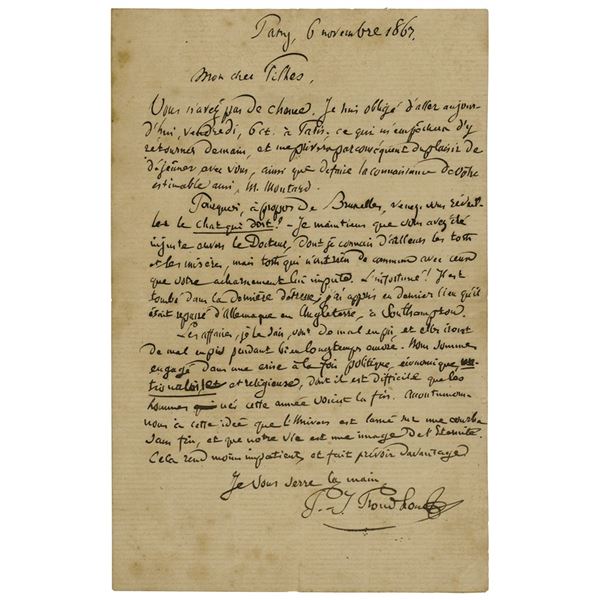 6 novembre 186
Mon cher Pilhes,
Vous n'avez pas de chance. Je suis obligé d'aller aujour-
d'hui, vendredi, 6 ct. à Paris, ce qui m'empêchera d'y
retourner demain, et me privera par conséquent du plaisir de
déjeuner avec vous, ainsi que de faire la connaissance de votre
estimable ami, M. Montard.
Pourquoi, à propos de Bruxelles, venez-vous réveil-
ler le chat qui dort? - Je maintiens que vous avez été
injuste envers le Docteur, dont je connais d'ailleurs les torts
et les misères, mais torts qui n'ont rien de commun avec ceux
que votre acharnement lui impute. L'infortuné! Il est
tombé dans la dernière détresse; j'ai appris en dernier lieu qu'il
était repassé d'Allemagne en Angleterre, à Southampton.
Les affaires, je le sais, vont de mal en pis et elles iront
de mal en pis pendant bien longtemps encore. Nous sommes
engagés dans une crise à la fois politique, économique,
et religieuse, dont il est difficile que les
hommes nés cette année voient la fin. Accoutumons-
nous à cette idée que l'Univers est lancé sur une courbe
sans fin, et que notre vie est une image de l'Eternité.
Cela rend moins impatient, et fait prévoir davantage
Je vous serre la main
P.-J. Proudhon